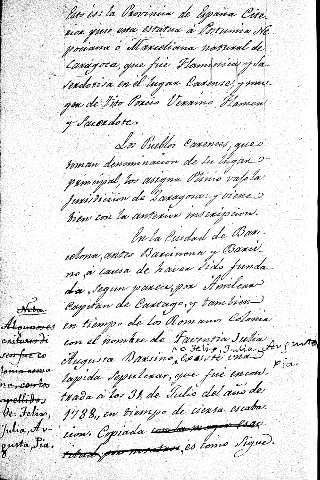 Esto es: la Provincia de España Cite-
rior puso esta estatua á Postumia Ne-
poniana ó Marcelliana natural de
Caragoza, que fué Flaminica y Sa-
cerdotisa en el lugar Carense, y mu-
ger de Tito Porcio Verrino, Flamen
y Sacerdote.
Los Pueblos Carences, que
toman denominacion de su lugar
principal, los asigna Plinio vajo la
Jurisdiccion de Zaragoza: y viene
bien con la anterior inscripcion.
En la Ciudad de Bar-
celona, antes Barcinona y Barci-
no á causa de haver sido funda-
da segun parece, por Amilcar
Capitan de Cartago, y tambien
en tiempo de los Romanos Colonia
con el nombre de Faventia Julia
Augusta Barcino, existe una
ó Felix, Julia, Augusta
Pia
lapida sepulcral, que fué encon-
trada á los 31 de Julio del año de
1788, en tiempo de cierta escaba-
cion. Copiada con la mayor exac-
titud, por nosotros es como sigue.
Nota
Julia, Au-
gusta, Pia.